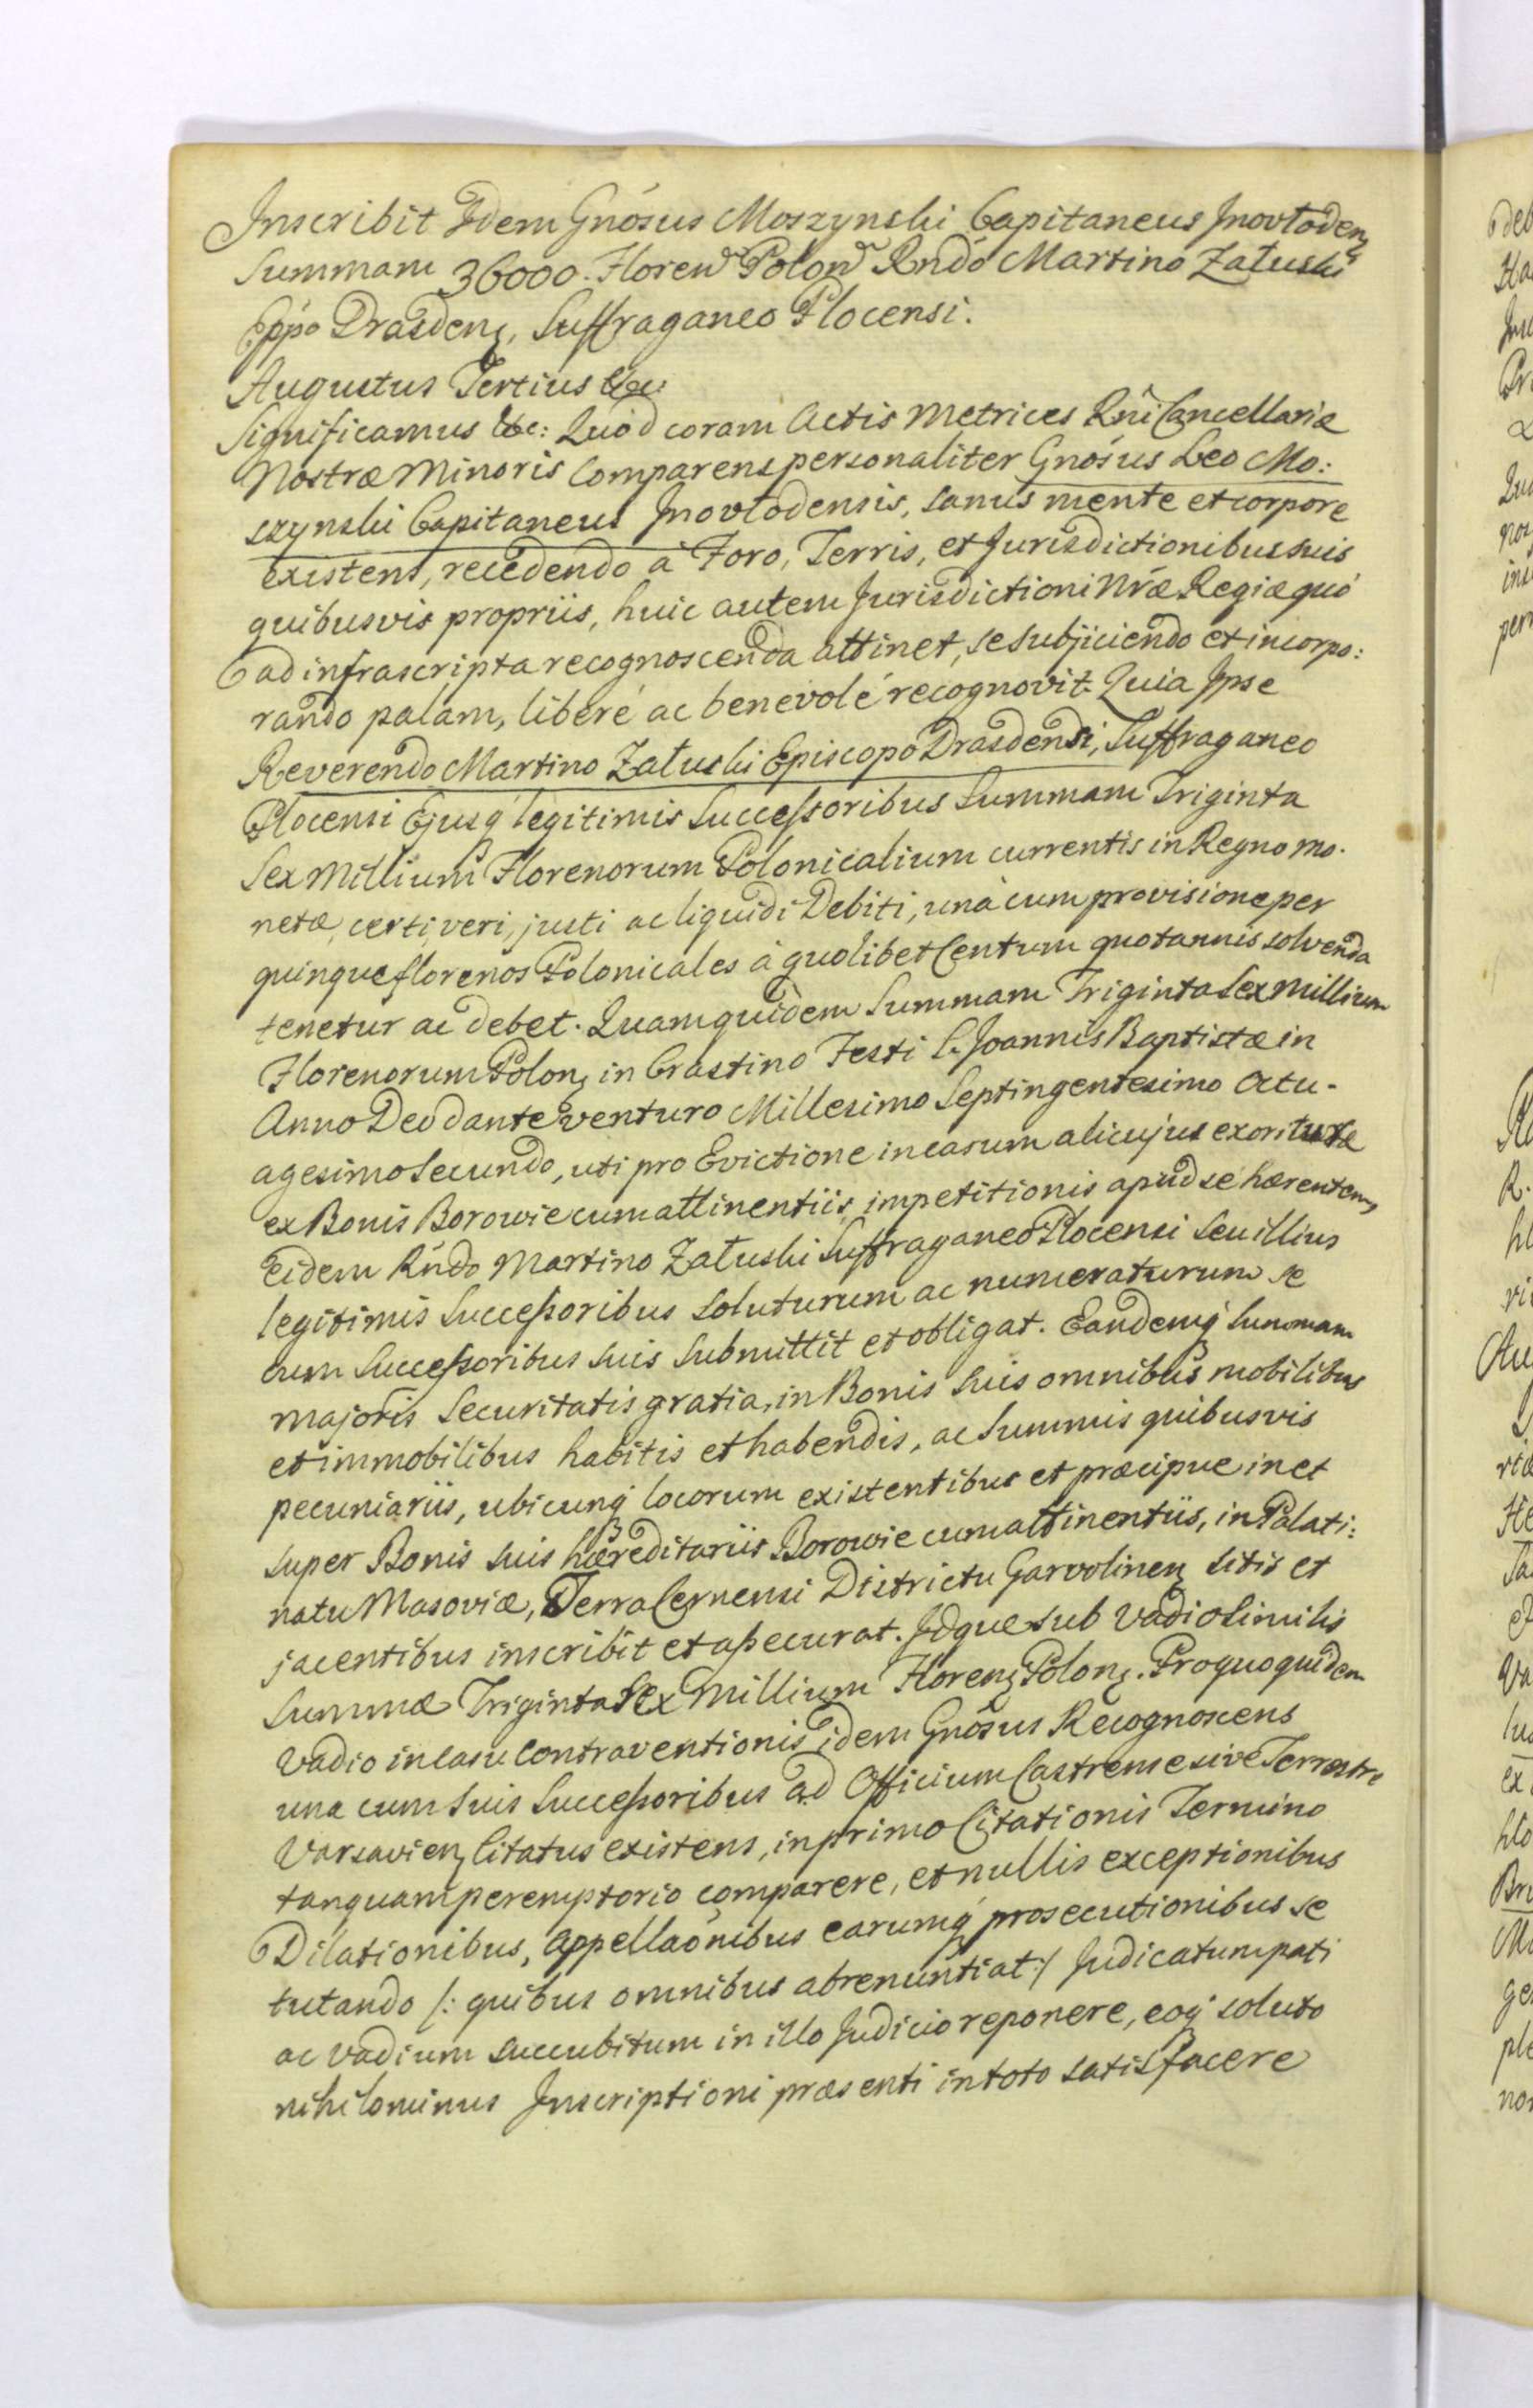 Inscribit Idem Gnósus Moszynski Capitaneus Inovlodenȝ
Summam 36000. Floren̄ Polon̄ Rndó Martino Załuski
Eppo Drasdenȝ, Suffraganeo Plocensi.
Augustus Tertius &c:
Significamus &c: Quód coram Actis Metrices Rñi Cancellariæ
Nostræ Minoris Comparens personaliter Gnósus Leo Mo:
szynski Capitaneus Inovlodensis, sanus mente et corpore
existens, recedendo à Foro, Terris, et Jurisdictionibus suis
quibusvis propriis, huic autem Jurisdictioni Nræ Regiæ quó
ad infrascripta recognoscenda attinet, se subjiciendo et incorpo:
rando palam, liberé ac benevolé recognovit. Quia Ipse
Reverendo Martino Załuski Episcopo Drasdensi, Suffraganeo
Plocensi Ejusq́ legitimis Successoribus Summam Triginta
Sex Millium Florenorum Polonicalium currentis in Regno mo-
netæ, certi, veri, justi ac liquidi Debiti, unà cum provisione per
quinque florenos Polonicales à quolibet Centum quotannis solvenda
tenetur ac debet. Quamquidem Summam Triginta Sex Millium
Florenorum Polonȝ in Crastino Festi S. Joannis Baptistæ in
Anno Deo dante venturo Millesimo Septingentesimo Octu-
agesimo Secundo, uti pro Evictione in casum alicujus exorituræ
ex Bonis Borowie cum attinentiis impetitionis apud se hærentem,
eidem Rńdo Martino Załuski Suffraganeo Plocensi seu illius
legitimis Successoribus soluturum ac numeraturum se
cum Successoribus suis submittit et obligat. Eandemq́ Summam
majoris Securitatis gratia, in Bonis suis omnibus mobilibus
et immobilibus habitis et habendis, ac Summis quibusvis
pecuniariis, ubicunq́ locorum existentibus et præcipue in et
super Bonis suis hæreditariis Borowie cum attinentiis, in Palati:
natu Masoviæ, Terra Cernensi Districtu Garvolinenȝ sitis et
jacentibus inscribit et assecurat. Idque sub vadio similis
Summæ Triginta Sex Millium Florenȝ Polonȝ. Pro quo quidem
Vadio in casu Contraventionis idem Gnósus Recognoscens
una cum suis Successoribus ad Officium Castrense sive Terrestre
Varsavienȝ Citatus existens, in primo Citationis Termino
tanquam peremptorio comparere, et nullis exceptionibus
Dilationibus, Appellaónibus earumq́ prosecutionibus se
tutando /: quibus omnibus abrenuntiat :/ Judicatum pati
ac vadium succubitum in illo Judicio reponere, eoq́ soluto
nihilominus Inscriptioni præsenti in toto satisfacere